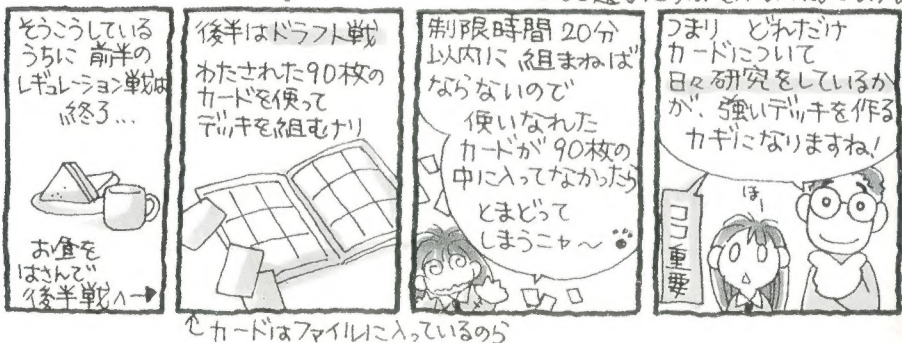 そうこうしている
うちに 前半の
レギュレーション戦は
終了...
お昼を
はさんで
後半戦へ→
後半はドラフト戦
わたされた90枚の
カードを使って
デッキを組むナリ
制限時間20分
以内に組まねば
ならないので
使いなれた
カードが90枚の
中に入ってなかったら
とまどって
しまうニャ〜
つまり どれだけ
カードについて
日々研究をしているか
が、強いデッキを作る
カギになりますね!
ココ重要
ほー
↑カードはファイルに入っているのら